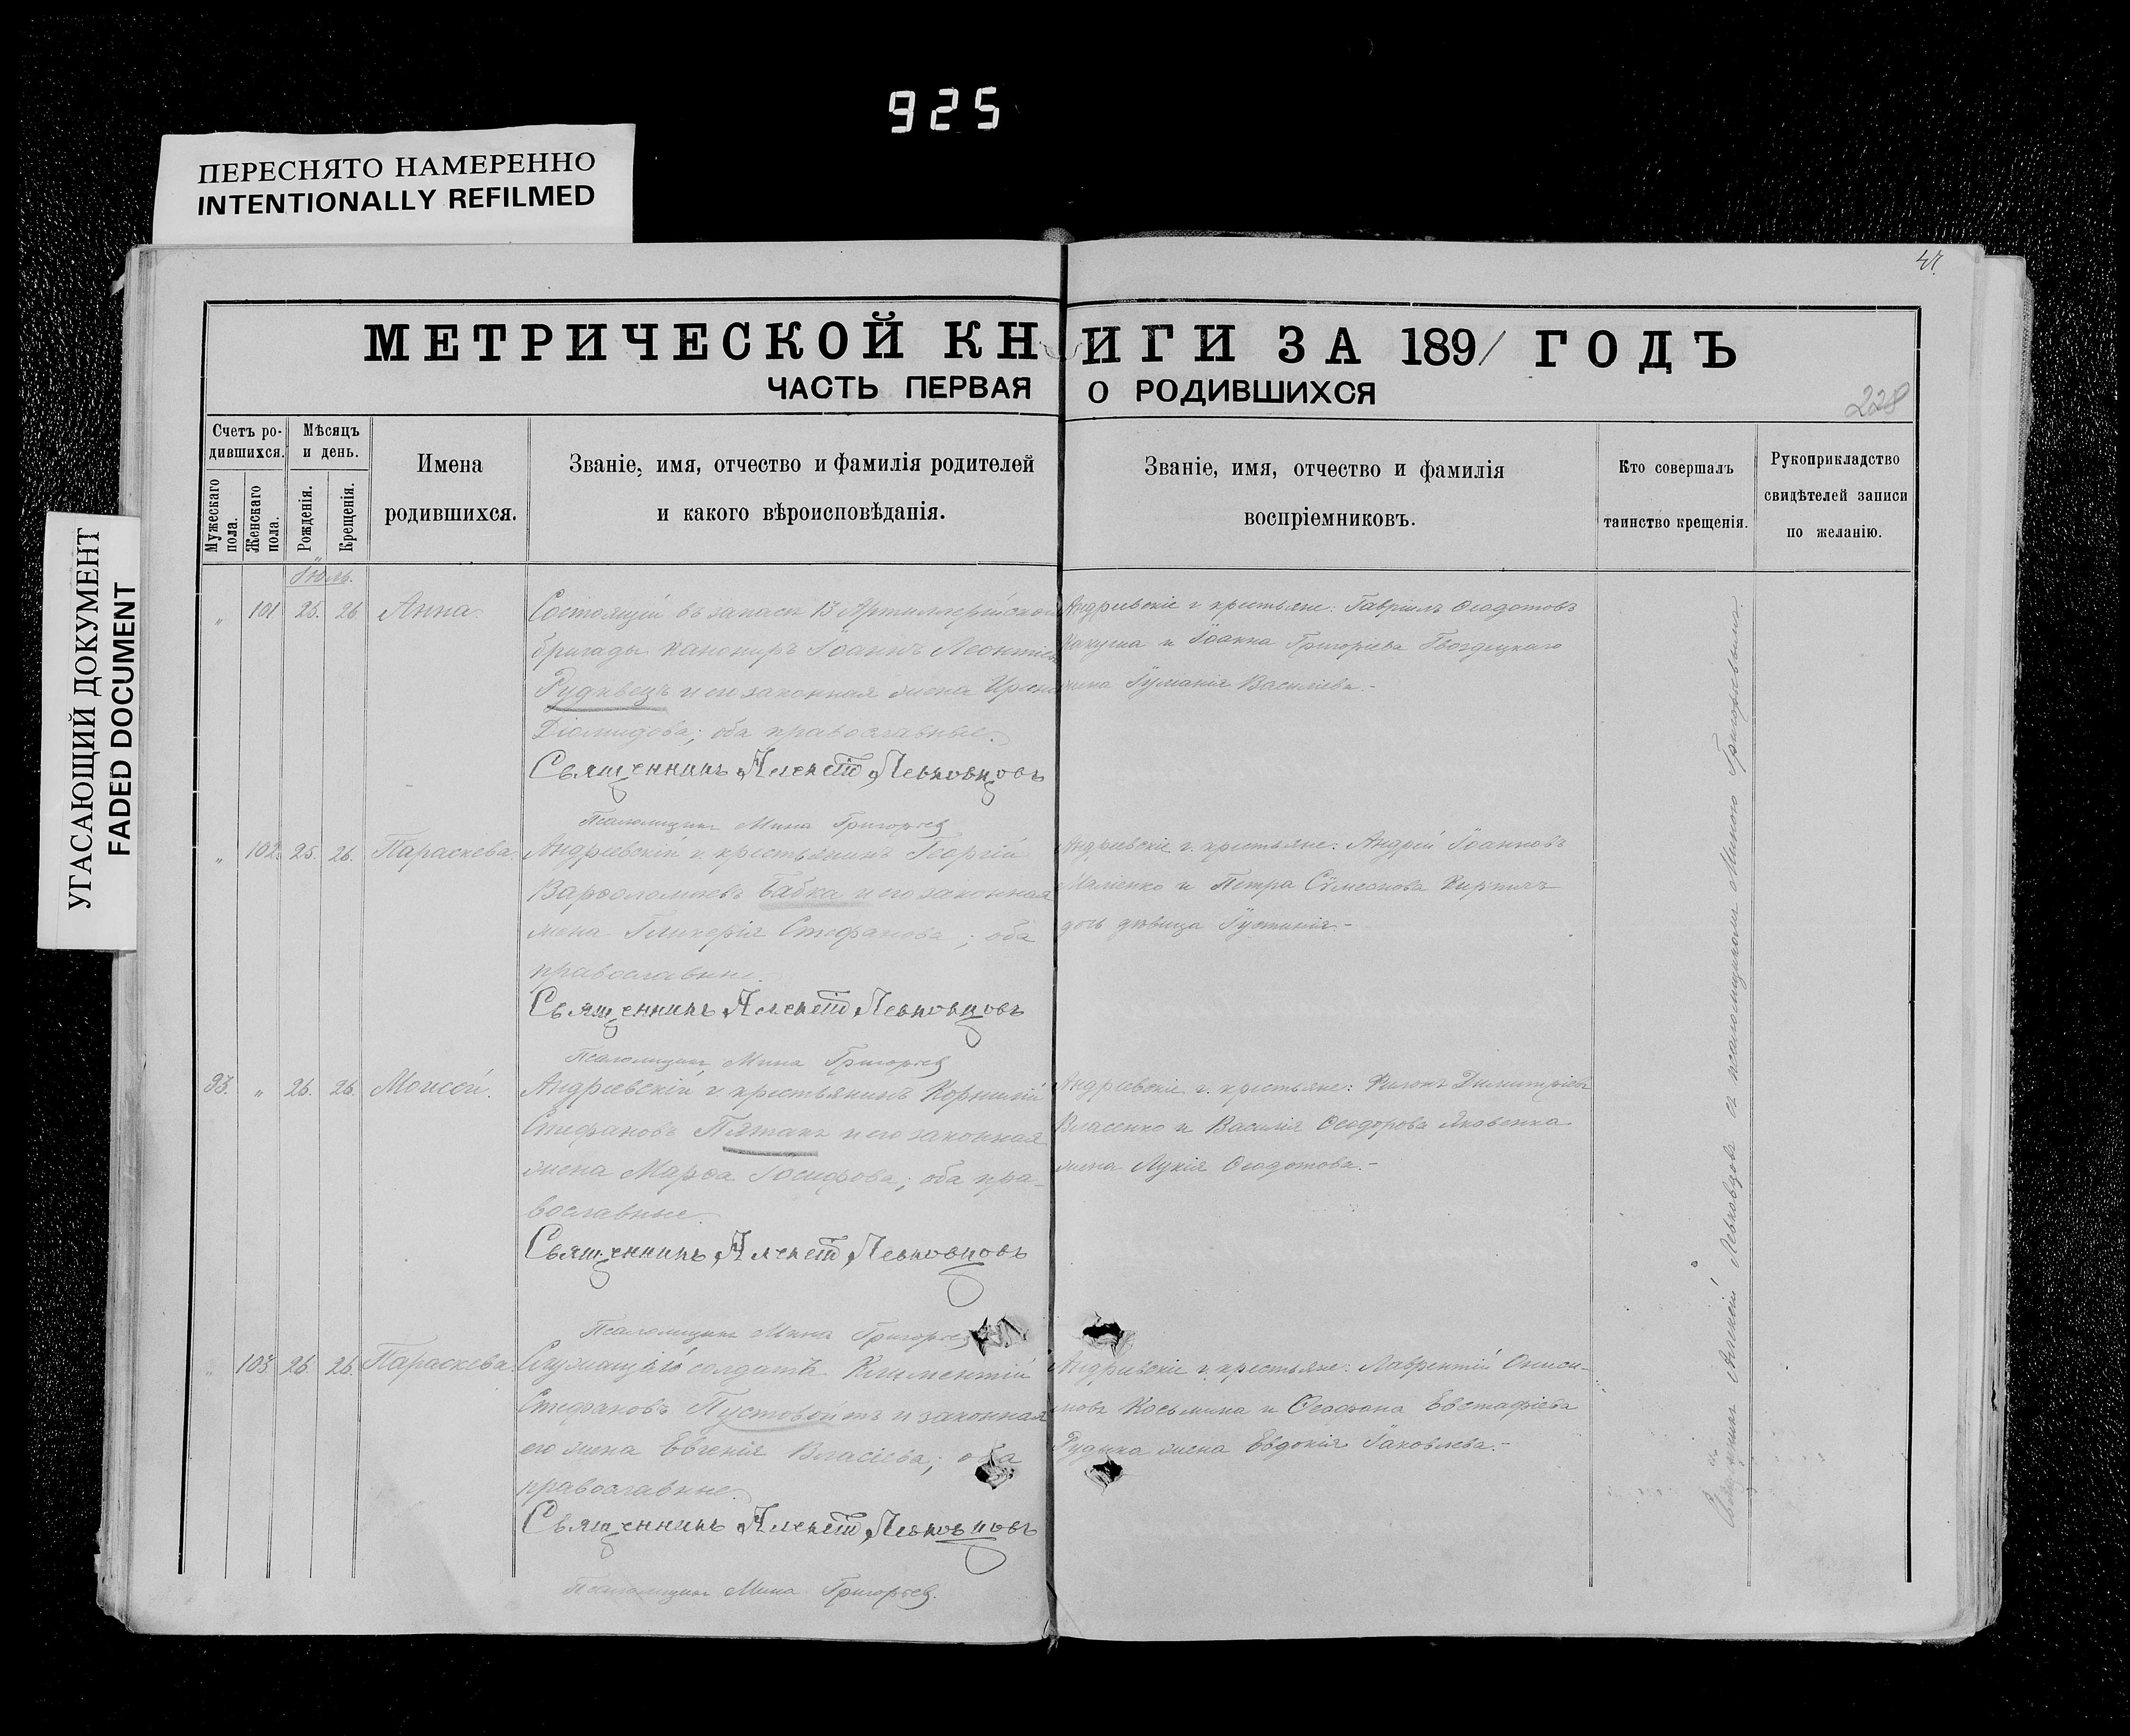 925
ПЕРЕСНЯТО НАМЕРЕННО
INTENTIONALLY REFILMED
УГАСАЮЩИЙ ДОКУМЕНТ
FADED DOCUMENT
МЕТРИЧЕСКОЙ КНИГИ ЗА 1891 ГОДЪ
ЧАСТЬ ПЕРВАЯ О РОДИВШИХСЯ
228
Счетъ ро-
дившихся.
Мужескаго
пола.
Женскаго
пола.
Мѣсяцъ
и день.
Рожденія.
Крещенія.
Имена
родившихся.
Званіе, имя, отчество и фамилія родителей
и какого вѣроисповѣданія.
Званіе, имя, отчество и фамилія
воспріемниковъ.
Кто совершалъ
таинство крещенія.
Рукоприкладство
свидѣтелей записи
по желанію.
Іюль.
„ 101 25. 26 Анна.
Состоящій въ запасѣ 13 Артиллерійской
бригады канониръ Іоаннъ Леонтіевъ
Рудивецъ и его законная жена Ирина
Діомидова; оба православные.
Священникъ Алексій Левковцовъ
Псаломщикъ Мина Григорьев
Андреевскіе г. крестьяне: Гавріилъ Ѳеодотовъ
и Іоанна Григоріева Гвоздецкаго
жена Іуліанія Василіева.-
„ 102. 25. 26. Параскева.
Андреевскій г. крестьянинъ Георгій
Варѳоломіевъ Бабка и его законная
жена Гликерія Стефанова; оба
православные.
Священникъ Алексій Левковцовъ
Псаломщикъ Мина Григорьев
Андреевскіе г. крестьяне: Андрей Іоанновъ
и Петра Сѵмеонова Кирпичъ
дочь дѣвица Іустинія.-
93. „ 26. 26. Моисей.
Андреевскій г. крестьянинъ Корнилій
Стефановъ Пятакъ и его законная
жена Марѳа Іосифова; оба пра-
вославные.
Священникъ Алексій Левковцовъ
Псаломщикъ Мина Григорьев
Андреевскіе г. крестьяне: Филонъ Димитріевъ
Власенко и Василія Ѳеодорова Яковенка
жена Лукія Ѳеодотова.-
„ 103. 26. 26. Параскева.
Служащій солдатъ Климентій
Стефановъ Пустовойтъ и законная
его жена Евгенія Власіева; оба
православные.
Священникъ Алексій Левковцовъ
Псаломщикъ Мина Григорьев.
Андреевскіе г. крестьяне: Лаврентій Ониси-
мовъ Косьмина и Ѳеофана Евстафіева
Рудика жена Евдокія Іаковлева.-
Священникъ Алексій Левковцовъ съ псаломщикомъ Миною Григорьевымъ.